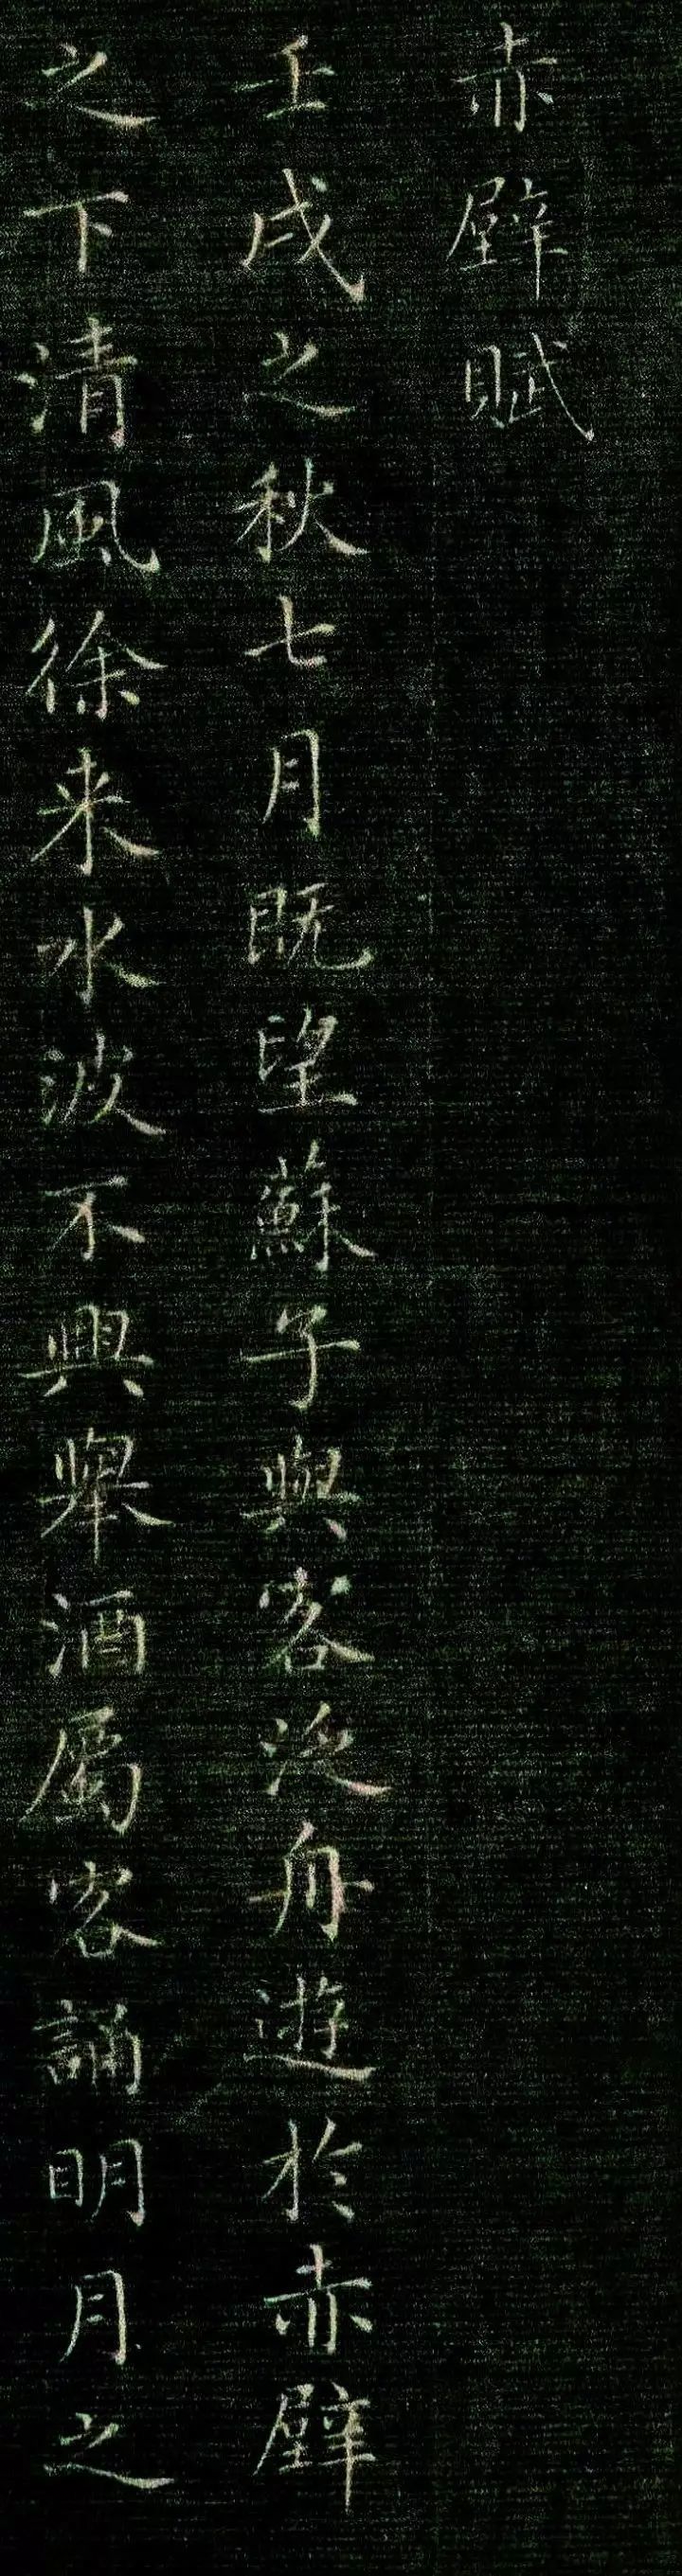 赤壁賦
壬戌之秋七月既望蘇子與客泛舟遊於赤壁
之下清風徐来水波不興舉酒屬客誦明月之